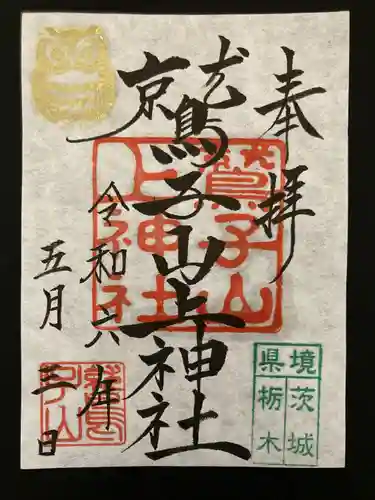 奉拝
鷲子山上神社
令和六年
五月三日
鷲子山上神社
鷲子山
境 茨城県 栃木